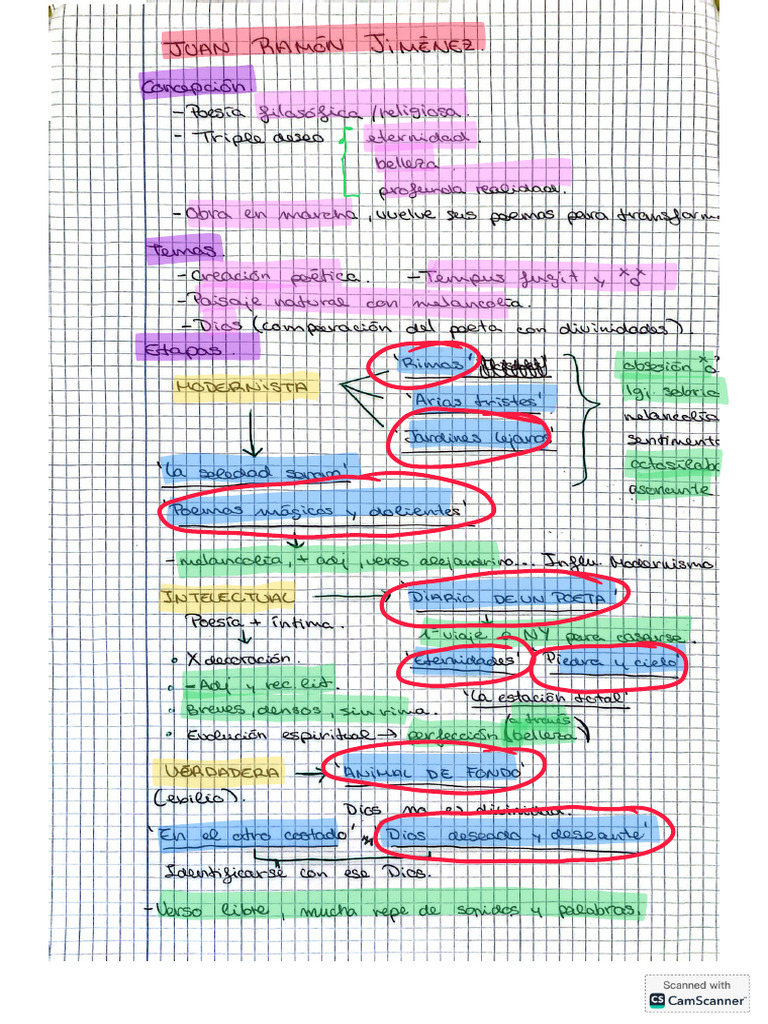 JUAN RAMÓN JIMÉNEZ.
Concepción
- Poesía filosófica/religiosa.
- Triple deseo { eternidad.
belleza
profunda realidad.
- Obra en marcha, vuelve sus poemas para transform
Temas.
- Creación poética. - Tempus fugit y
- Paisaje natural con melancolía.
- Dios (comparación del poeta con divinidades).
Etapas.
MODERNISTA
'Rimas'
'Arias tristes'
'Jardines lejanos'
obsesión
melancolía
sentimento
octosílabo
asonante
'La soledad sonora'
'Poemas mágicos y dolientes'
- melancolía, + adj, verso alejandrino... Influ. Modernismo
INTELECTUAL → 'DIARIO DE UN POETA'
Poesía + íntima.
1º viaje a NY para casarse.
• X decoración.
'Eternidades' 'Piedra y cielo'
• - Adj y rec lit.
'La estación total'
• Breves, densos, sin rima.
• Evolución espiritual → perfección (a través belleza)
VERDADERA → 'ANIMAL DE FONDO'
(exilio).
Dios no es divinidad.
'En el otro costado' 'Dios deseado y deseante'
Identificarse con ese Dios.
- Verso libre, mucha repe de sonidos y palabras.
Scanned with
CS CamScanner